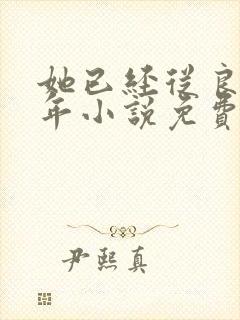 她已經從良
年小說免費
尹熙真